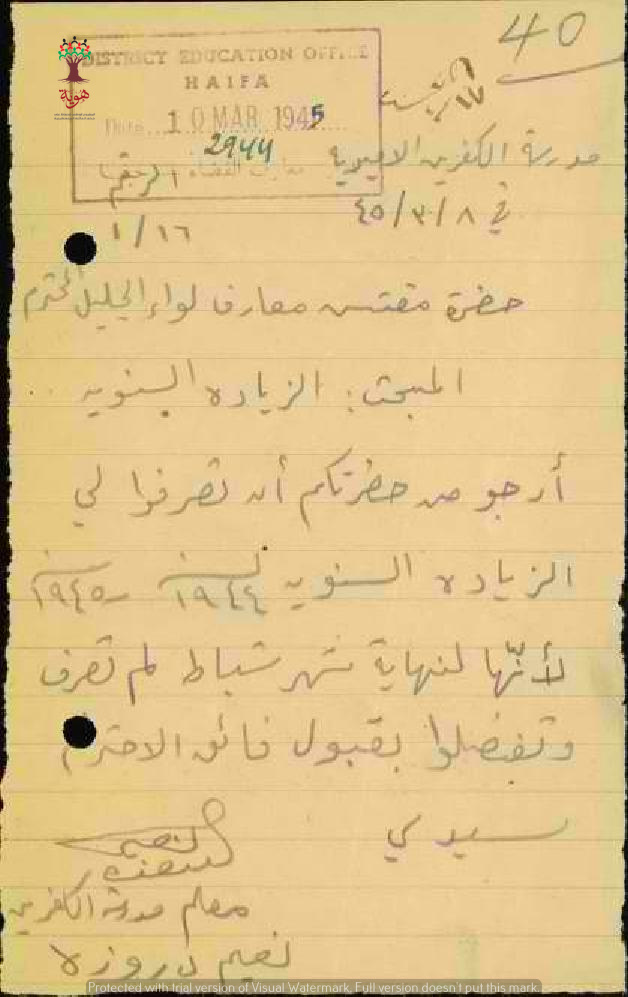 40
DISTRICT EDUCATION OFFICE
HAIFA
Date 10 MAR 1945
2944
هوية
مدرسة الكفرين الاميرية
في ٨/٣/٤٥
الرقم
١/١٦
حضرة مفتش معارف لواء الجليل المحترم
المبحث: الزياده السنويه
أرجو من حضرتكم أن تصرفوا لي
الزياده السنويه لسنة ١٩٤٤ - سنة ١٩٤٥
لأنّها لنهاية شهر شباط لم تصرف
وتفضلوا بقبول فائق الاحترام
سيدي
معلم مدرسة الكفرين
نعيم دروزه
Protected with trial version of Visual Watermark. Full version doesn't put this mark.